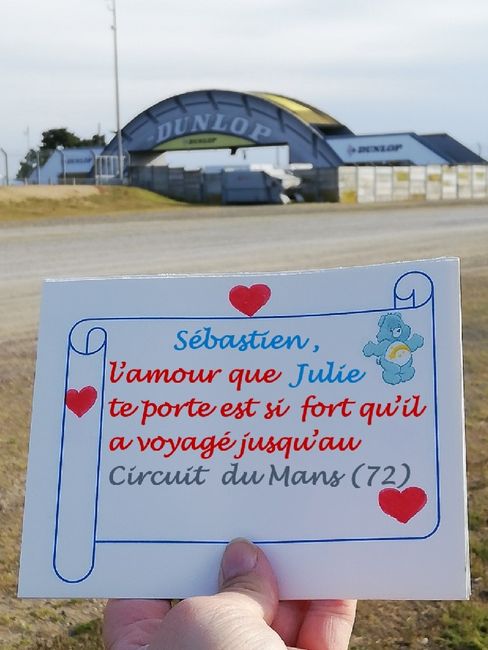 DUNLOP
DUNLOP
Sébastien,
l'amour que Julie
te porte est si fort qu'il
a voyagé jusqu'au
Circuit du Mans (72)